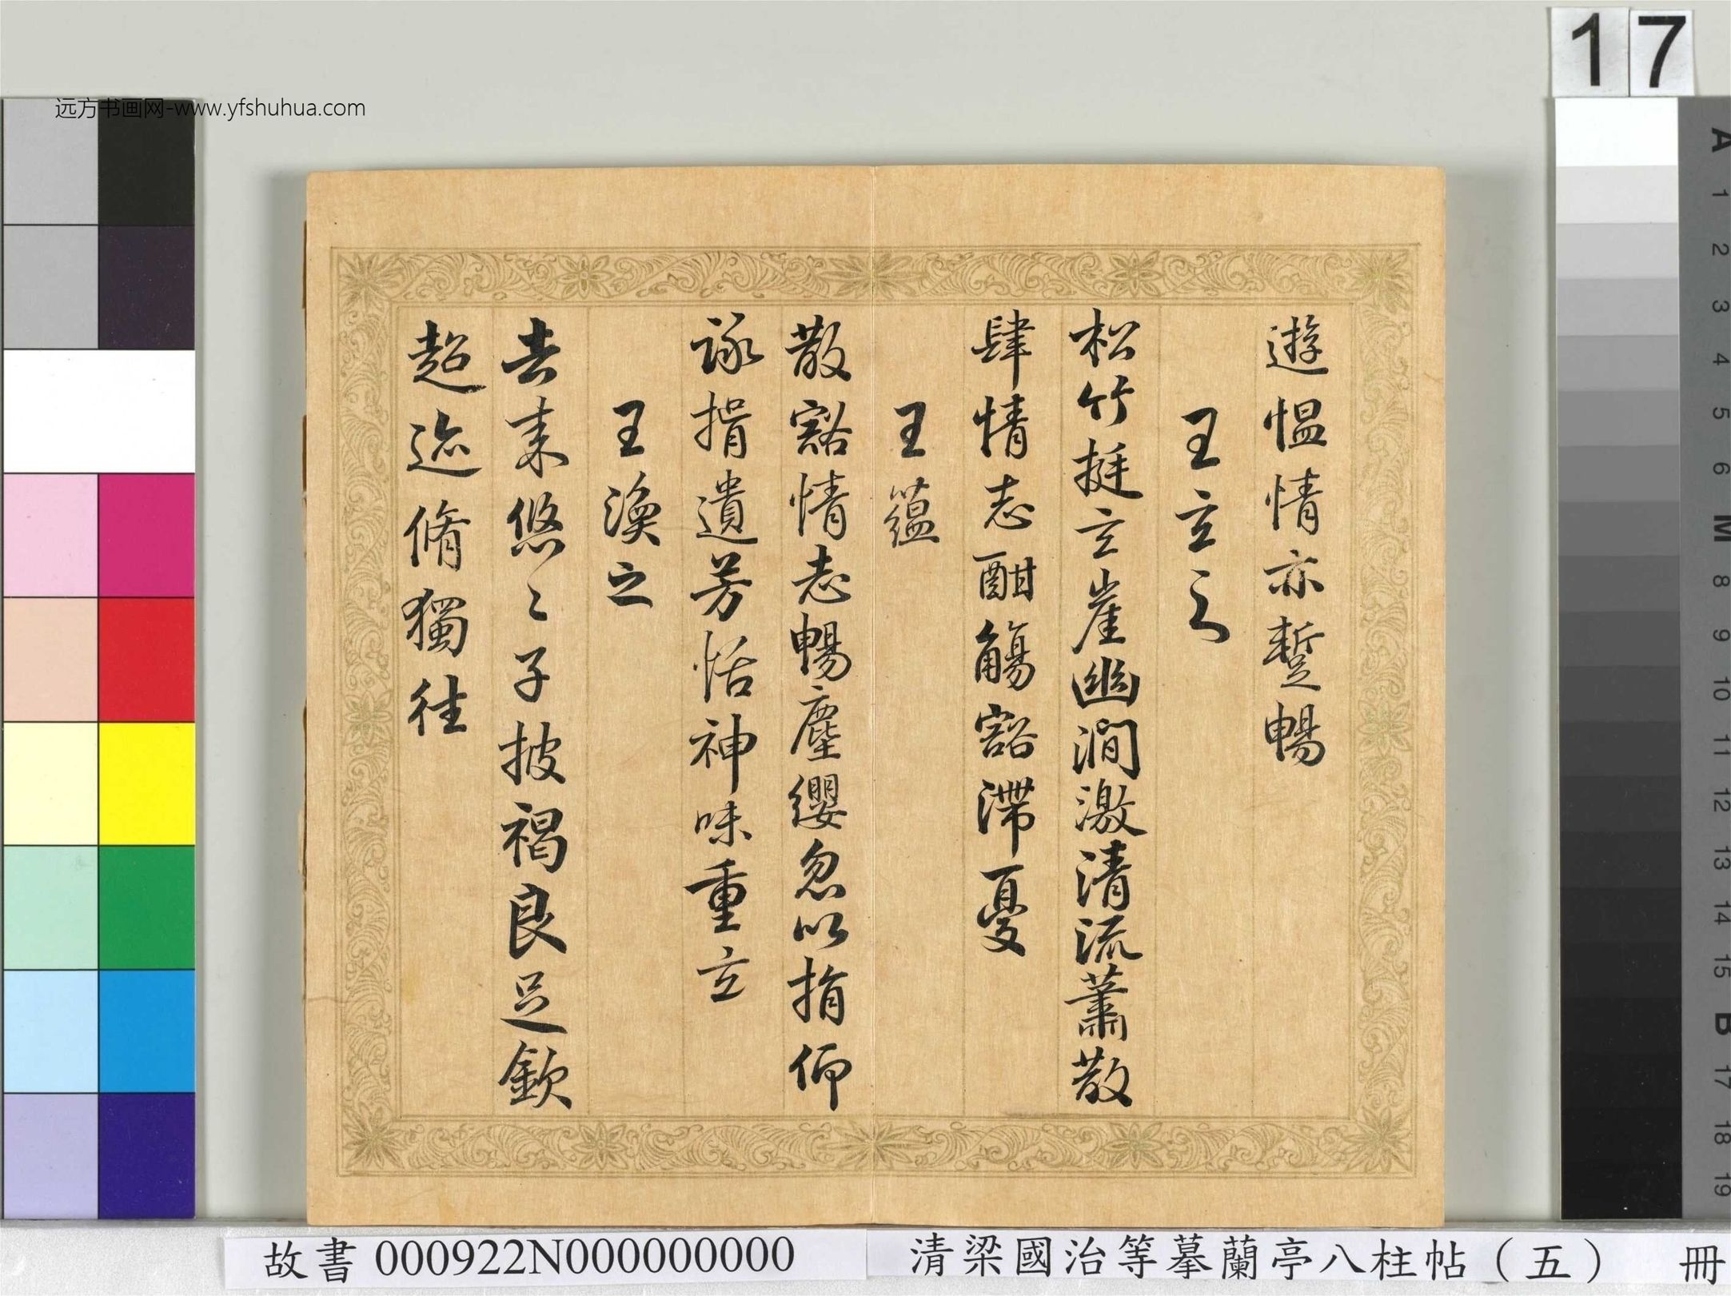 17
远方书画网-www.yfshuhua.com
遊愠情亦蹔暢
王玄之
松竹挺玄崖幽澗激清流蕭散
肆情志酣觴豁滯憂
王蘊
散豁情志暢塵纓忽以捐仰
詠挹遺芳恬神味重玄
王渙之
去来悠〻子披褐良足欽
超迹脩獨往
故書 000922N000000000
清梁國治等摹蘭亭八柱帖（五） 冊
A
1
2
3
4
5
6
M
8
9
10
11
12
13
14
15
B
17
18
19